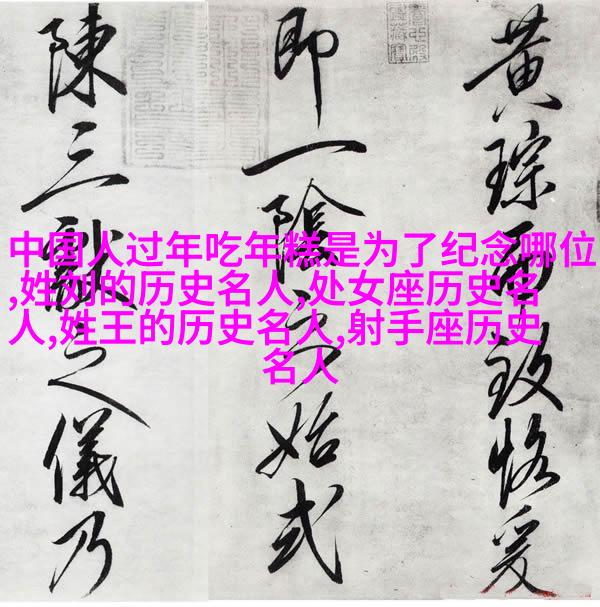 中国人过年吃年糕是为了纪念哪位
,姓刘的历史名人,处女座历史名
人,姓王的历史名人,射手座历史
名人
黄琮而致恪爰
即一陰之始式
陳三獻之儀乃